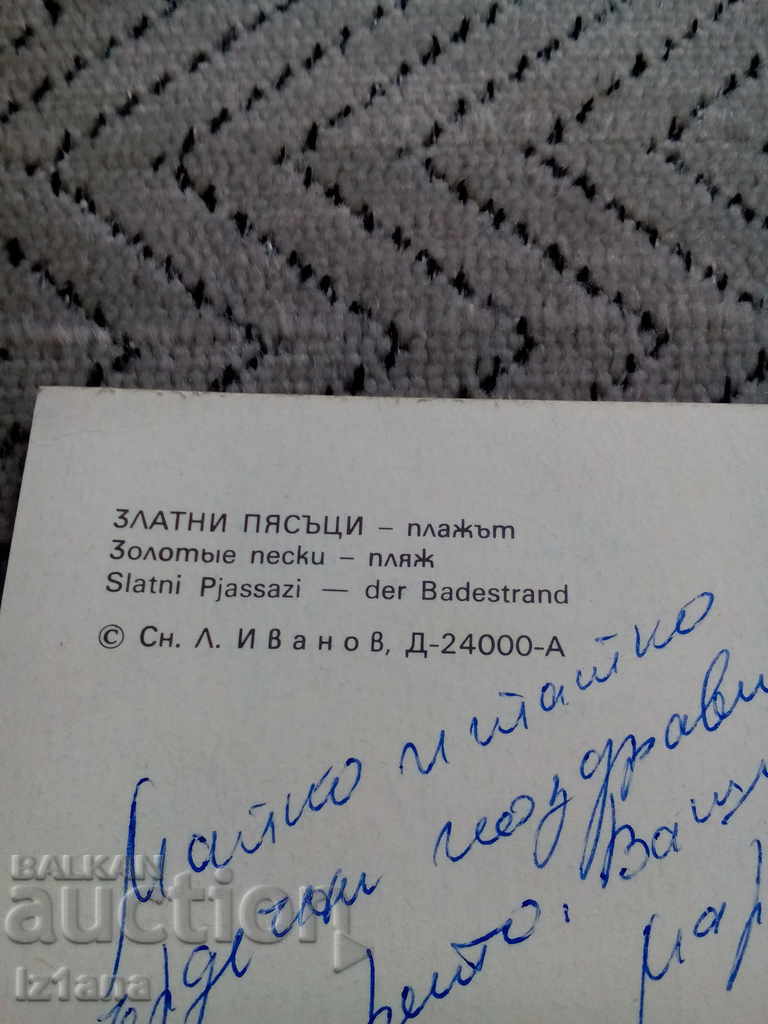 ЗЛАТНИ ПЯСЪЦИ – плажът
Золотые пески – пляж
Slatni Pjassazi — der Badestrand
© Сн. Л. Иванов, Д-24000-А
Майко и татко
рдечни поздрави
рето. Ваш
Мар
BALKAN
auction
Iz1ana